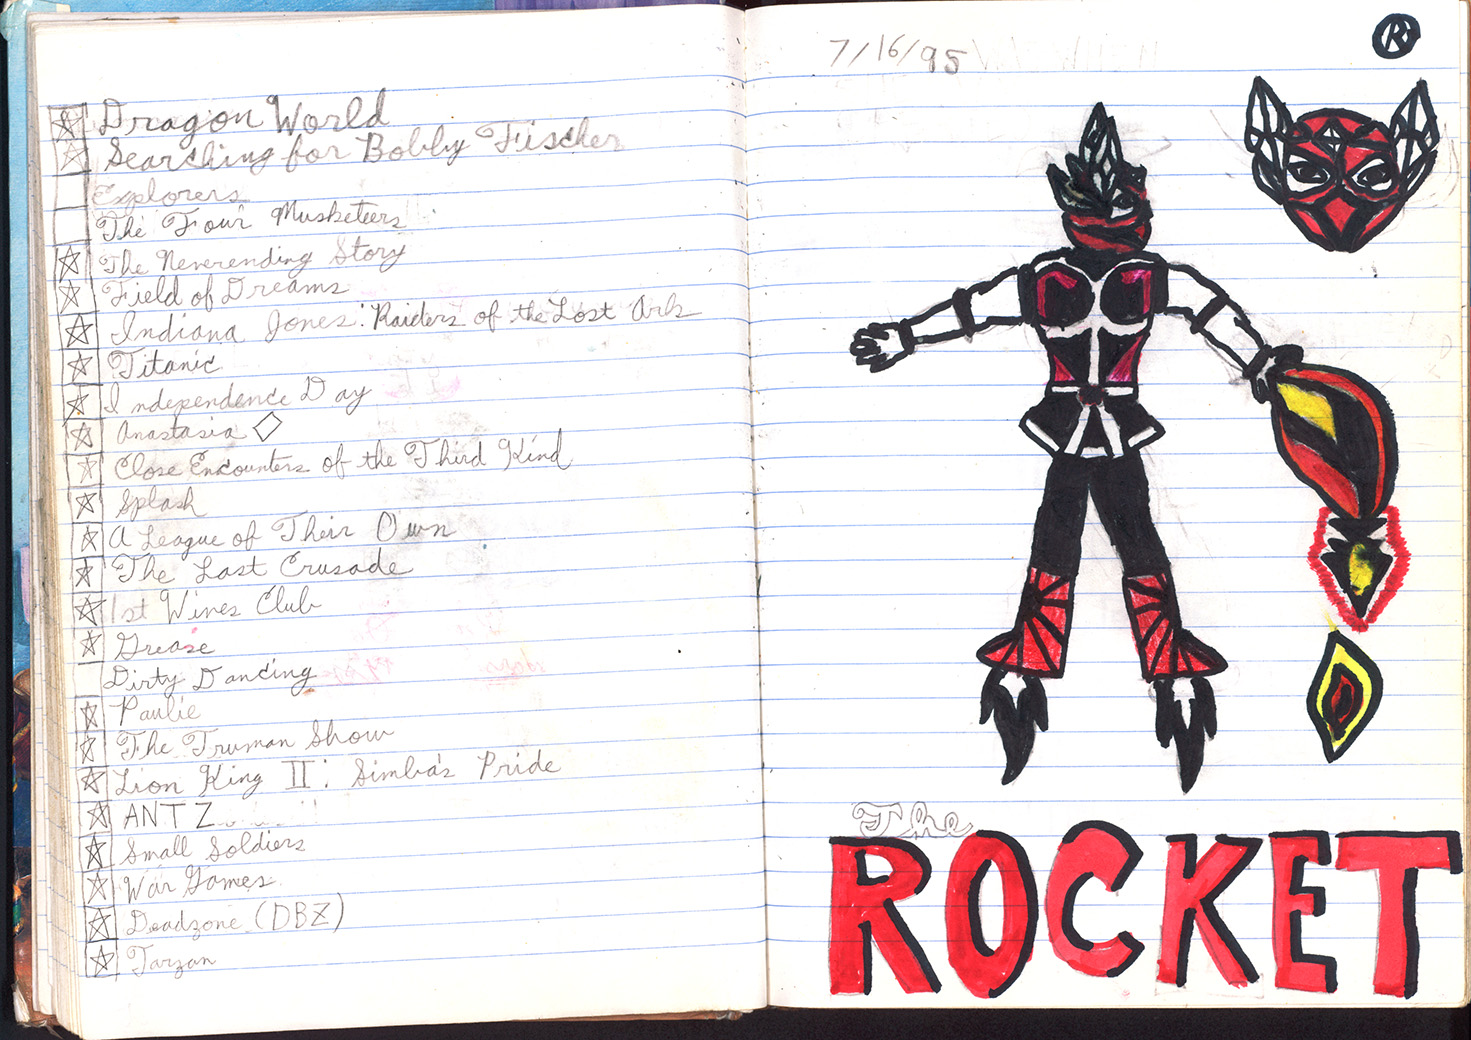 Dragon World
Searching for Bobby Fischer
Explorers
The Four Musketeers
The Neverending Story
Field of Dreams
Indiana Jones: Raiders of the Lost Ark
Titanic
Independence Day
Anastasia
Close Encounters of the Third Kind
Splash
A League of Their Own
The Last Crusade
1st Wives Club
Grease
Dirty Dancing
Paulie
The Truman Show
Lion King II: Simba's Pride
ANTZ
Small Soldiers
War Games
Deadzone (DBZ)
Tarzan
7/16/95
R
The
ROCKET